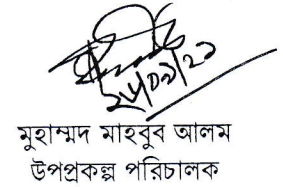 ২৮/০৯/২১
মুহাম্মদ মাহবুব আলম
উপপ্রকল্প পরিচালক